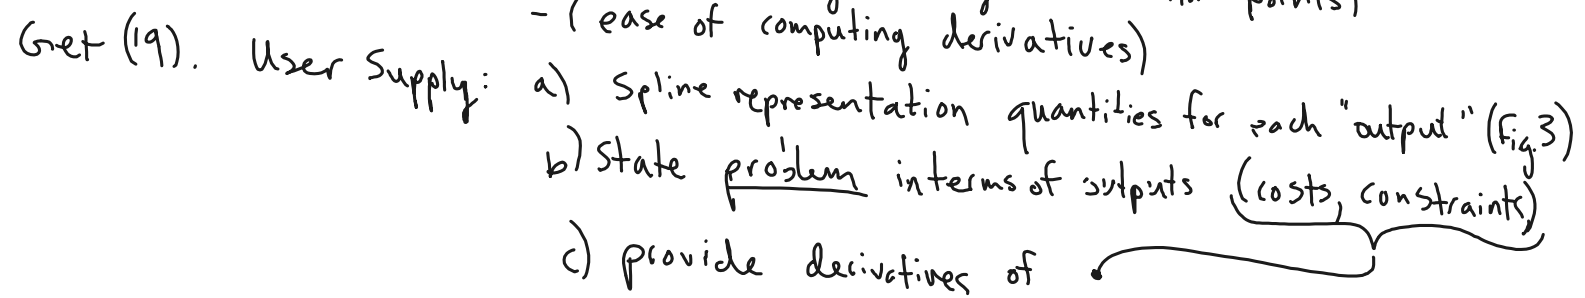 points)
- (ease of computing derivatives)
Get (19). User Supply: a) Spline representation quantities for each "output" (Fig.3)
b) State problem in terms of outputs (costs, constraints)
c) provide derivatives of